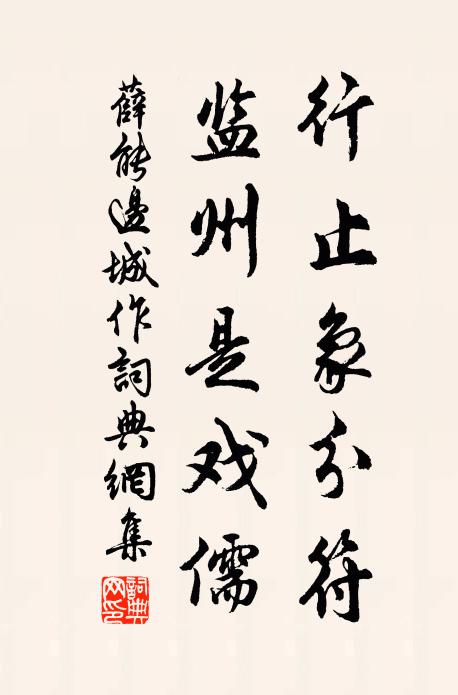 行止象分符
监州是戏儒
薛能邊城作詞典網集
詞典网印